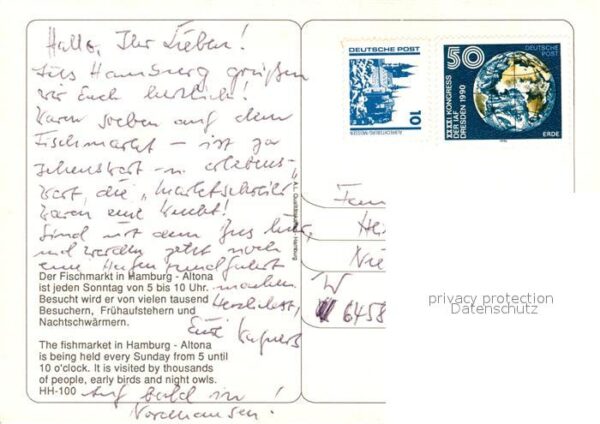 Hallo, Ihr Lieben!
Aus Hamburg grüßen
wir Euch herzlich!
Waren soeben auf dem
Fischmarkt – ist ja
sehenswert u. erlebens-
wert, die "Marktschreier"
waren eine Wucht!
Sind mit dem Bus hier,
und werden jetzt noch
eine Hafenrundfahrt
machen.
Herzlichst,
Eure
Der Fischmarkt in Hamburg - Altona
ist jeden Sonntag von 5 bis 10 Uhr.
Besucht wird er von vielen tausend
Besuchern, Frühaufstehern und
Nachtschwärmern.
The fishmarket in Hamburg - Altona
is being held every Sunday from 5 until
10 o'clock. It is visited by thousands
of people, early birds and night owls.
HH-100
Auf bald in
Nordhausen!
Hamburg
DEUTSCHE POST
10
ALBRECHTSBURG MEISSEN
50
DEUTSCHE
POST
XXXXI. KONGRESS
DER IAF
DRESDEN 1990
ERDE
1990
Fam
He
Nie
W
6458
privacy protection
Datenschutz